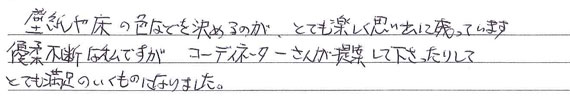 壁紙や床の色などを決めるのが、とても楽しく思い出に残っています
優柔不断な私ですが　コーディネーターさんが提案して下さったりして
とても満足のいくものになりました。